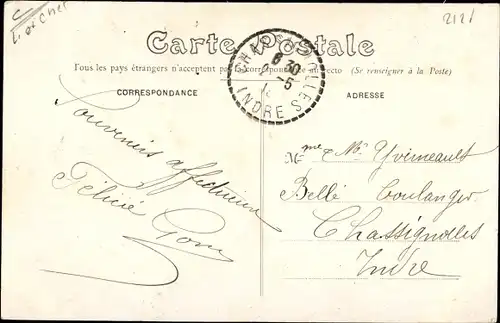 L. et Cher
2121
Carte Postale
Tous les pays étrangers n'acceptent pas la correspondance au recto (Se renseigner à la Poste)
CORRESPONDANCE
ADRESSE
CHASSIGNOLLES
6 30
-5
INDRE
Souvenirs affectueux
Félicie
Mme & Mr Yvernault
Bellé Boulanger
Chassignolles
Indre